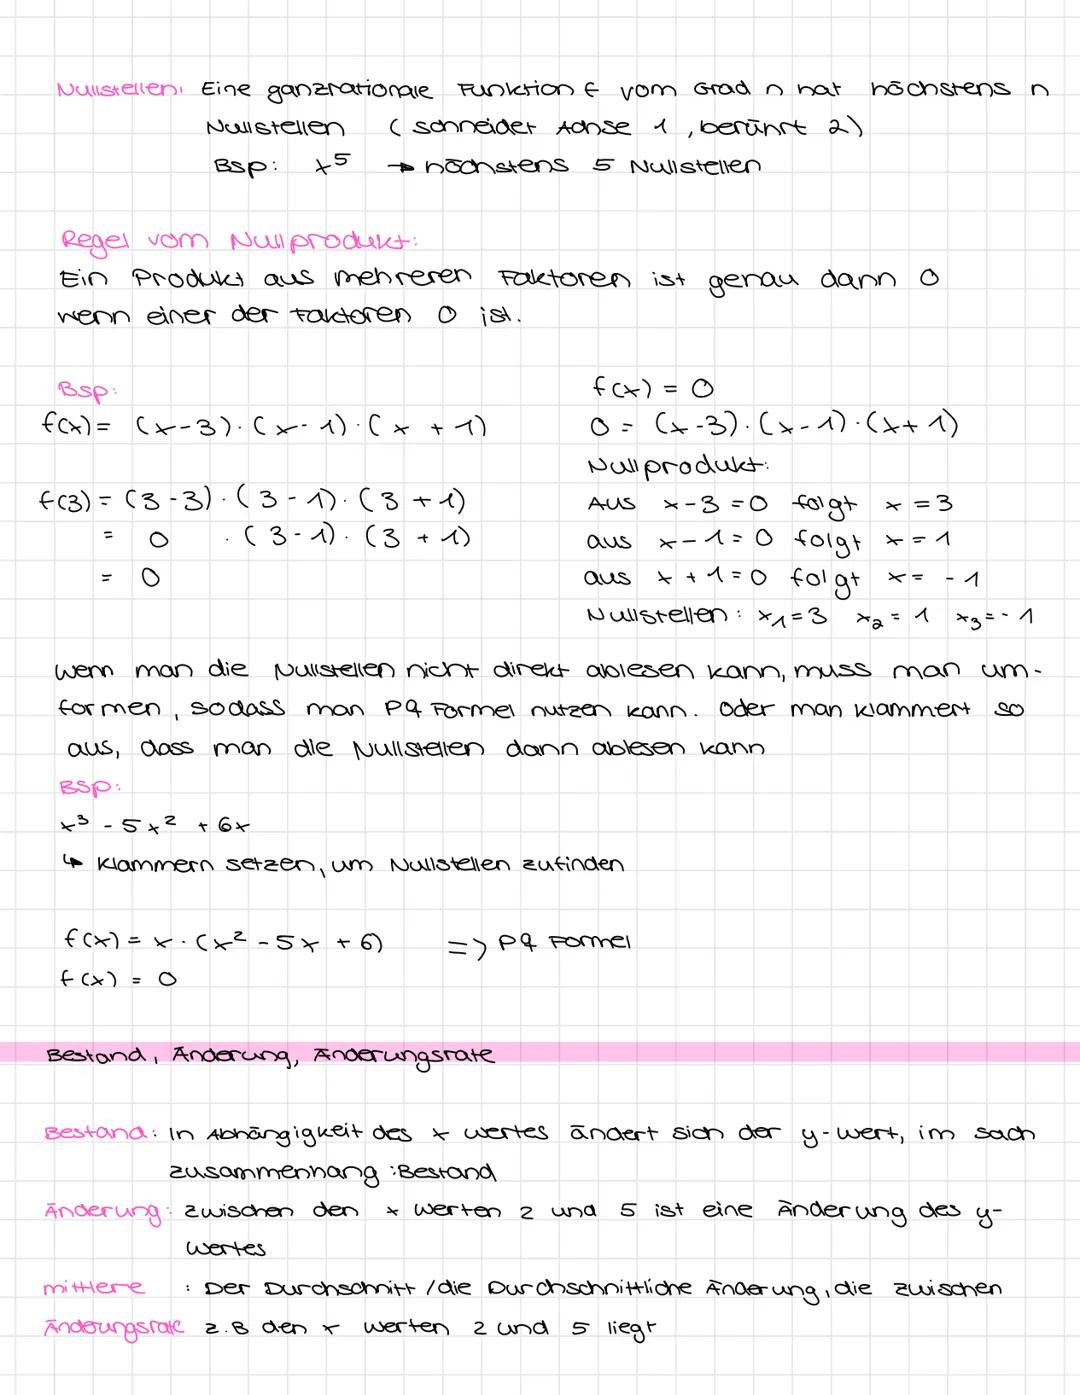 Nullstellen: Eine ganzrationale Funktion f vom Grad n hat höchstens n
Nullstellen (schneidet Achse 1, berührt 2)
Bsp: x⁵ → höchstens 5 Nullstellen
Regel vom Nullprodukt:
Ein Produkt aus mehreren Faktoren ist genau dann 0
wenn einer der Faktoren 0 ist.
Bsp:
f(x) = (x-3)·(x-1)·(x+1)
f(3) = (3-3)·(3-1)·(3+1)
= 0 ·(3-1)·(3+1)
= 0
f(x) = 0
0 = (x-3)·(x-1)·(x+1)
Nullprodukt:
Aus x-3=0 folgt x=3
aus x-1=0 folgt x=1
aus x+1=0 folgt x=-1
Nullstellen: x₁=3 x₂=1 x₃=-1
Wenn man die Nullstellen nicht direkt ablesen kann, muss man um-
formen, sodass man PQ Formel nutzen kann. Oder man klammert so
aus, dass man die Nullstellen dann ablesen kann
Bsp:
x³ - 5x² + 6x
↳ Klammern setzen, um Nullstellen zufinden
f(x) = x·(x² - 5x + 6) => PQ Formel
f(x) = 0
Bestand, Änderung, Änderungsrate
Bestand: In Abhängigkeit des x wertes ändert sich der y-Wert, im sach
zusammenhang :Bestand
Änderung: zwischen den x Werten 2 und 5 ist eine Änderung des y-
Wertes
mittlere : Der Durchschnitt / die Durchschnittliche Änderung, die zwischen
Änderungsrate z.B den x Werten 2 und 5 liegt